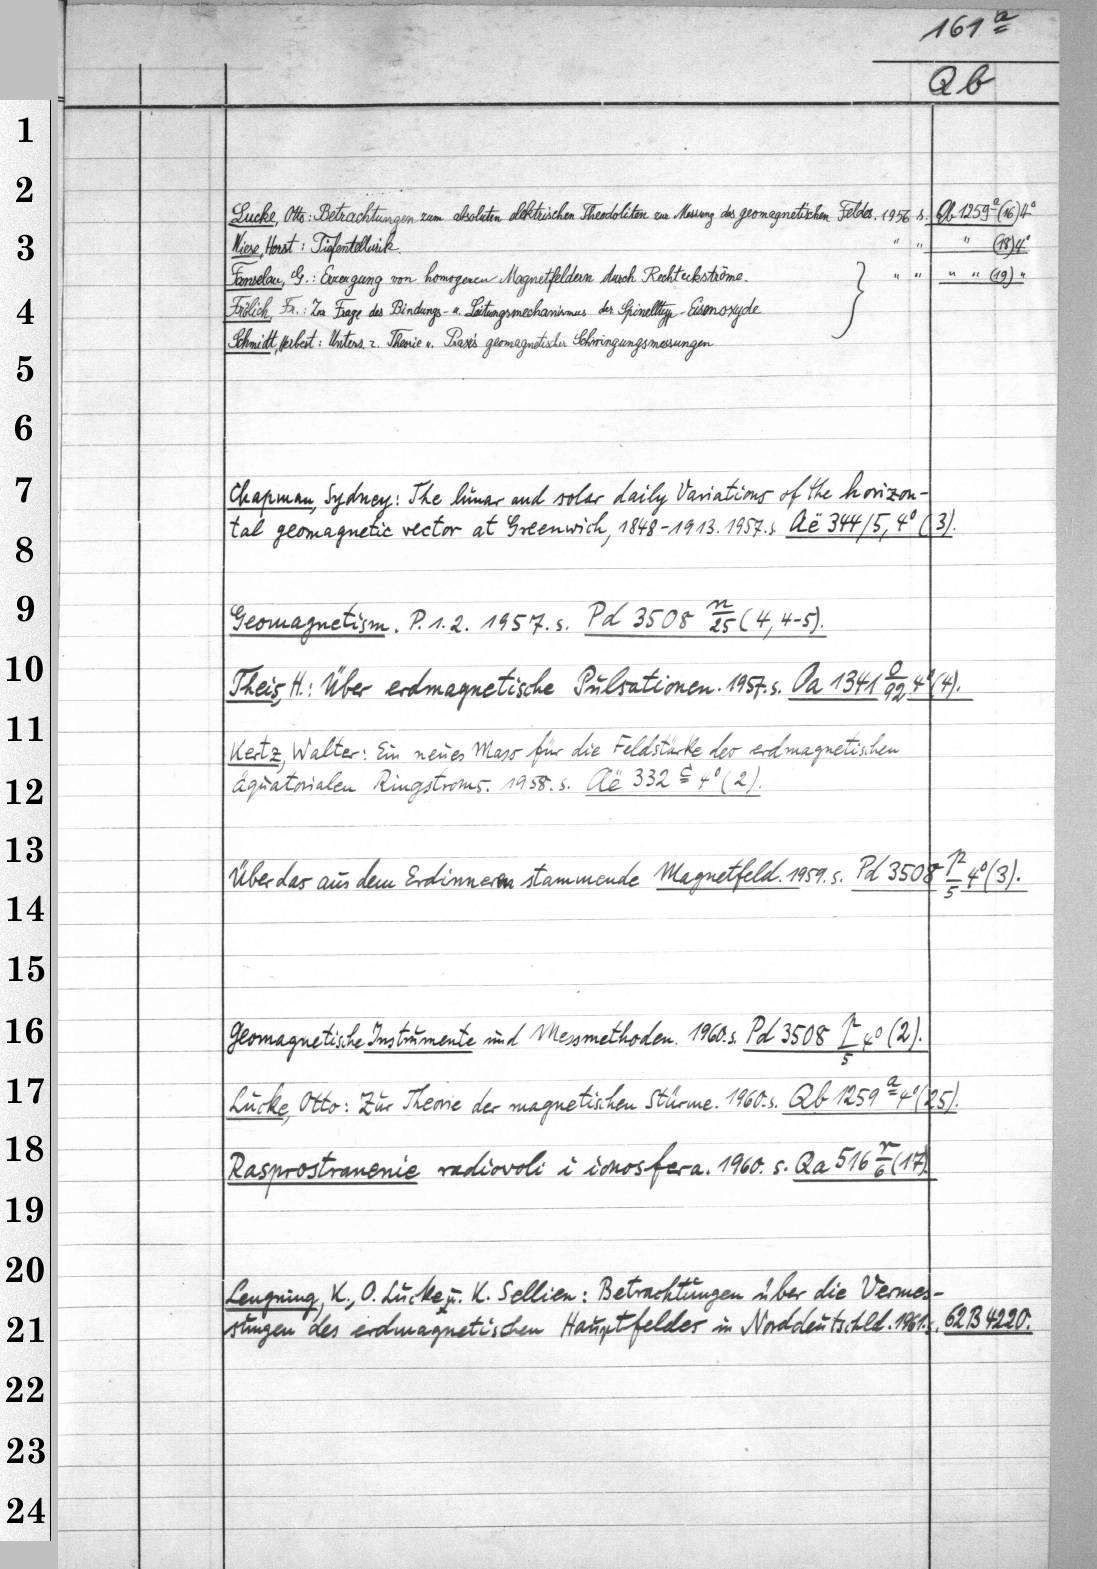 161 a
Qb
1
2
Lucke, Otto: Betrachtungen zum absoluten elektrischen Theodoliten zur Messung des geomagnetischen Feldes. 1956 s. Qb 1259 a (16) 4°
3
Wiese, Horst: Tiefentellurik. " " " (18) 4°
Fanselau, G.: Erzeugung von homogenen Magnetfeldern durch Rechteckströme. } " " " " (19) "
4
Frölich, Fr.: Zur Frage des Bindungs- u. Leitungsmechanismus der Spinelltyp-Eisenoxyde
Schmidt, Herbert: Unters. z. Theorie u. Praxis geomagnetischer Schwingungsmessungen
5
6
7
Chapman, Sydney: The lunar and solar daily Variations of the horizon-
tal geomagnetic vector at Greenwich, 1848-1913. 1957. s. Aë 344/5, 4° (3).
8
9
Geomagnetism. P. 1. 2. 1957. s. Pd 3508 n/25 (4, 4-5).
10
Theis, H.: Über erdmagnetische Pulsationen. 1957. s. Oa 1341 o/92 4° (4).
11
Kertz, Walter: Ein neues Mass für die Feldstärke des erdmagnetischen
12
äquatorialen Ringstroms. 1958. s. Aë 332 c 4° (2).
13
Über das aus dem Erdinnern stammende Magnetfeld. 1959. s. Pd 3508 p/5 4° (3).
14
15
16
Geomagnetische Instrumente und Messmethoden. 1960. s. Pd 3508 p/5 4° (2).
17
Lucke, Otto: Zur Theorie der magnetischen Stürme. 1960. s. Qb 1259 a 4° (25).
18
Rasprostranenie radiovoli i ionosfera. 1960. s. Qa 516 r/6 (17).
19
20
Lengning, K., O. Lucke u. K. Sellien: Betrachtungen über die Vermes-
21
sungen des erdmagnetischen Hauptfeldes in Norddeutschld. 1961. s. 62 B 4220.
22
23
24